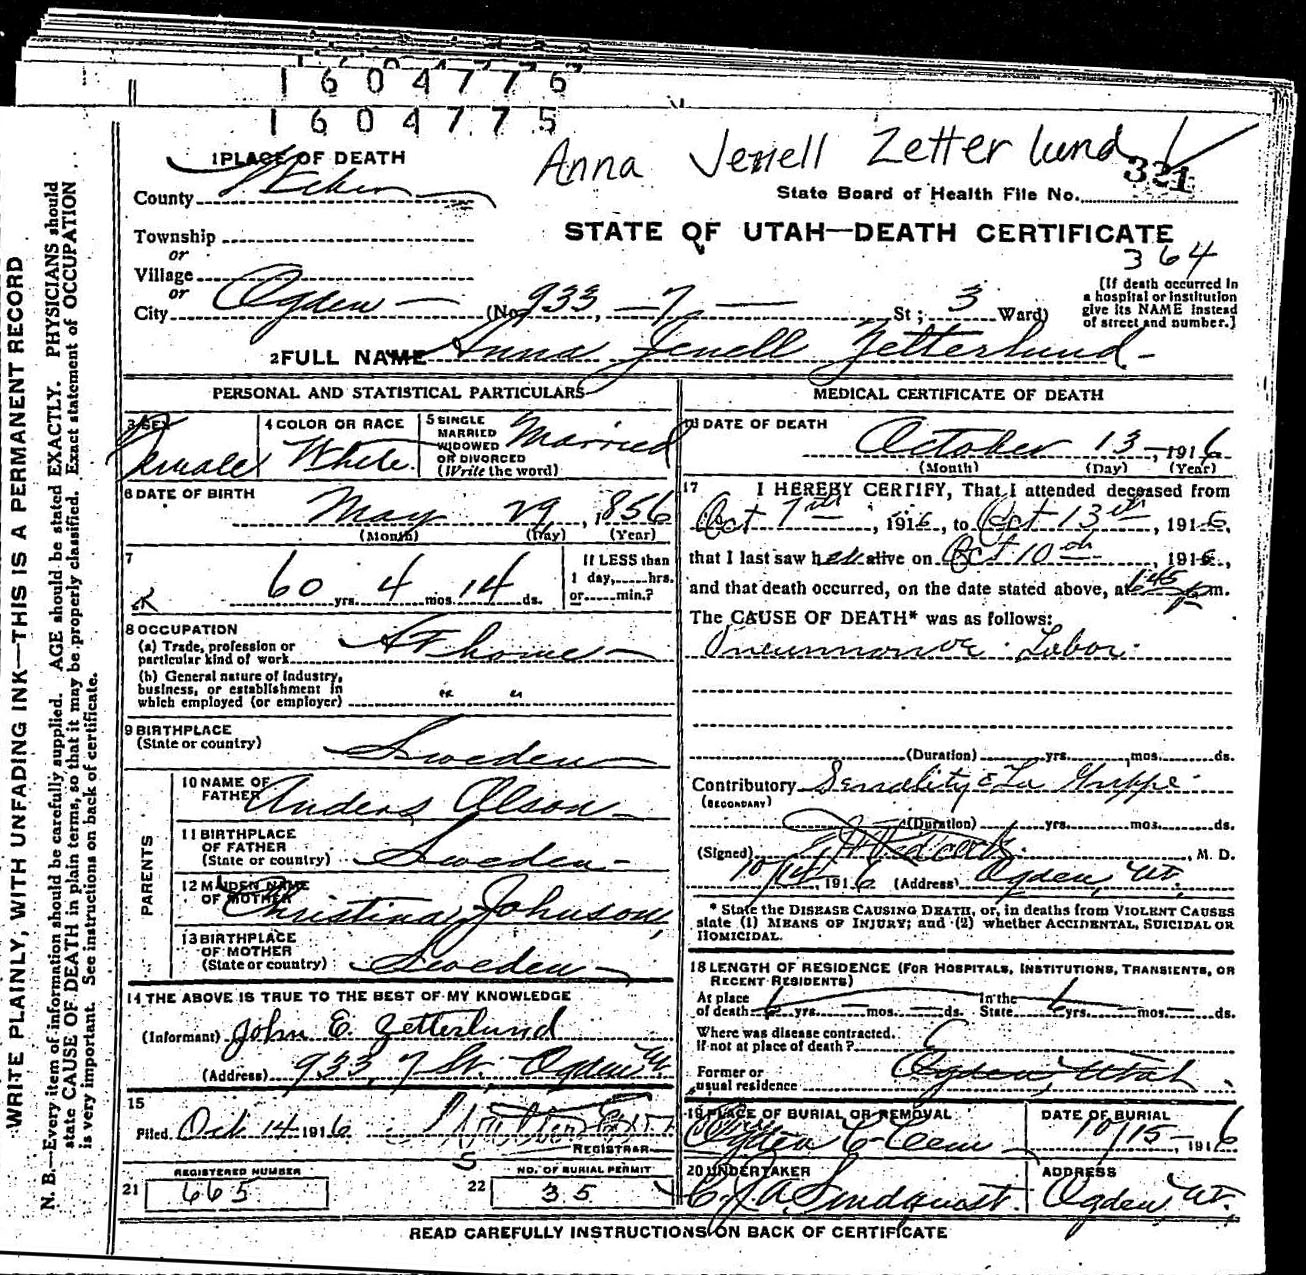 1 6 0 4 7 7 6
1 6 0 4 7 7 5
Anna Jenell Zetterlund
321
1 PLACE OF DEATH
County Weber
State Board of Health File No.
Township
or
Village
or
City Ogden
STATE OF UTAH—DEATH CERTIFICATE
364
(No. 933, 7 St; 3 Ward)
[If death occurred in
a hospital or institution
give its NAME instead
of street and number.]
2 FULL NAME Anna Jenell Zetterlund
PERSONAL AND STATISTICAL PARTICULARS
3 SEX
Female
4 COLOR OR RACE
White
5 SINGLE
MARRIED
WIDOWED
OR DIVORCED
(Write the word)
Married
6 DATE OF BIRTH
May 29, 1856
(Month) (Day) (Year)
7
60 yrs. 4 mos. 14 ds.
If LESS than
1 day, hrs.
or min.?
8 OCCUPATION
(a) Trade, profession or
particular kind of work At home
(b) General nature of industry,
business, or establishment in
which employed (or employer) " "
9 BIRTHPLACE
(State or country) Sweden
PARENTS
10 NAME OF
FATHER Anders Olson
11 BIRTHPLACE
OF FATHER
(State or country) Sweden
12 MAIDEN NAME
OF MOTHER Christina Johnson
13 BIRTHPLACE
OF MOTHER
(State or country) Sweden
14 THE ABOVE IS TRUE TO THE BEST OF MY KNOWLEDGE
(Informant) John E. Zetterlund
(Address) 933, 7 St. Ogden Ut.
15
Filed Oct 14 1916
REGISTRAR
REGISTERED NUMBER
21 665
NO. OF BURIAL PERMIT
22 35
MEDICAL CERTIFICATE OF DEATH
16 DATE OF DEATH
October 13, 1916
(Month) (Day) (Year)
17 I HEREBY CERTIFY, That I attended deceased from
Oct 7th, 1916, to Oct 13th, 1916,
that I last saw her alive on Oct 10th, 1916,
and that death occurred, on the date stated above, at m.
The CAUSE OF DEATH* was as follows:
Pneumonia Lobar
(Duration) yrs. mos. ds.
Contributory Senality & La Grippe
(SECONDARY)
(Duration) yrs. mos. ds.
(Signed) , M. D.
10/14, 1916 (Address) Ogden, Ut.
* State the DISEASE CAUSING DEATH, or, in deaths from VIOLENT CAUSES
state (1) MEANS OF INJURY; and (2) whether ACCIDENTAL, SUICIDAL OR
HOMICIDAL.
18 LENGTH OF RESIDENCE (FOR HOSPITALS, INSTITUTIONS, TRANSIENTS, OR
RECENT RESIDENTS)
At place
of death 6 yrs. mos. ds.
In the
State 6 yrs. mos. ds.
Where was disease contracted.
If not at place of death?
Former or
usual residence Ogden, Utah
19 PLACE OF BURIAL OR REMOVAL
Ogden City Cem
DATE OF BURIAL
10/15 1916
20 UNDERTAKER
C. J. A. Lindquist
ADDRESS
Ogden, Ut.
READ CAREFULLY INSTRUCTIONS ON BACK OF CERTIFICATE
WRITE PLAINLY, WITH UNFADING INK—THIS IS A PERMANENT RECORD
N. B.—Every item of information should be carefully supplied. AGE should be stated EXACTLY. PHYSICIANS should
state CAUSE OF DEATH in plain terms, so that it may be properly classified. Exact statement of OCCUPATION
is very important. See instructions on back of certificate.